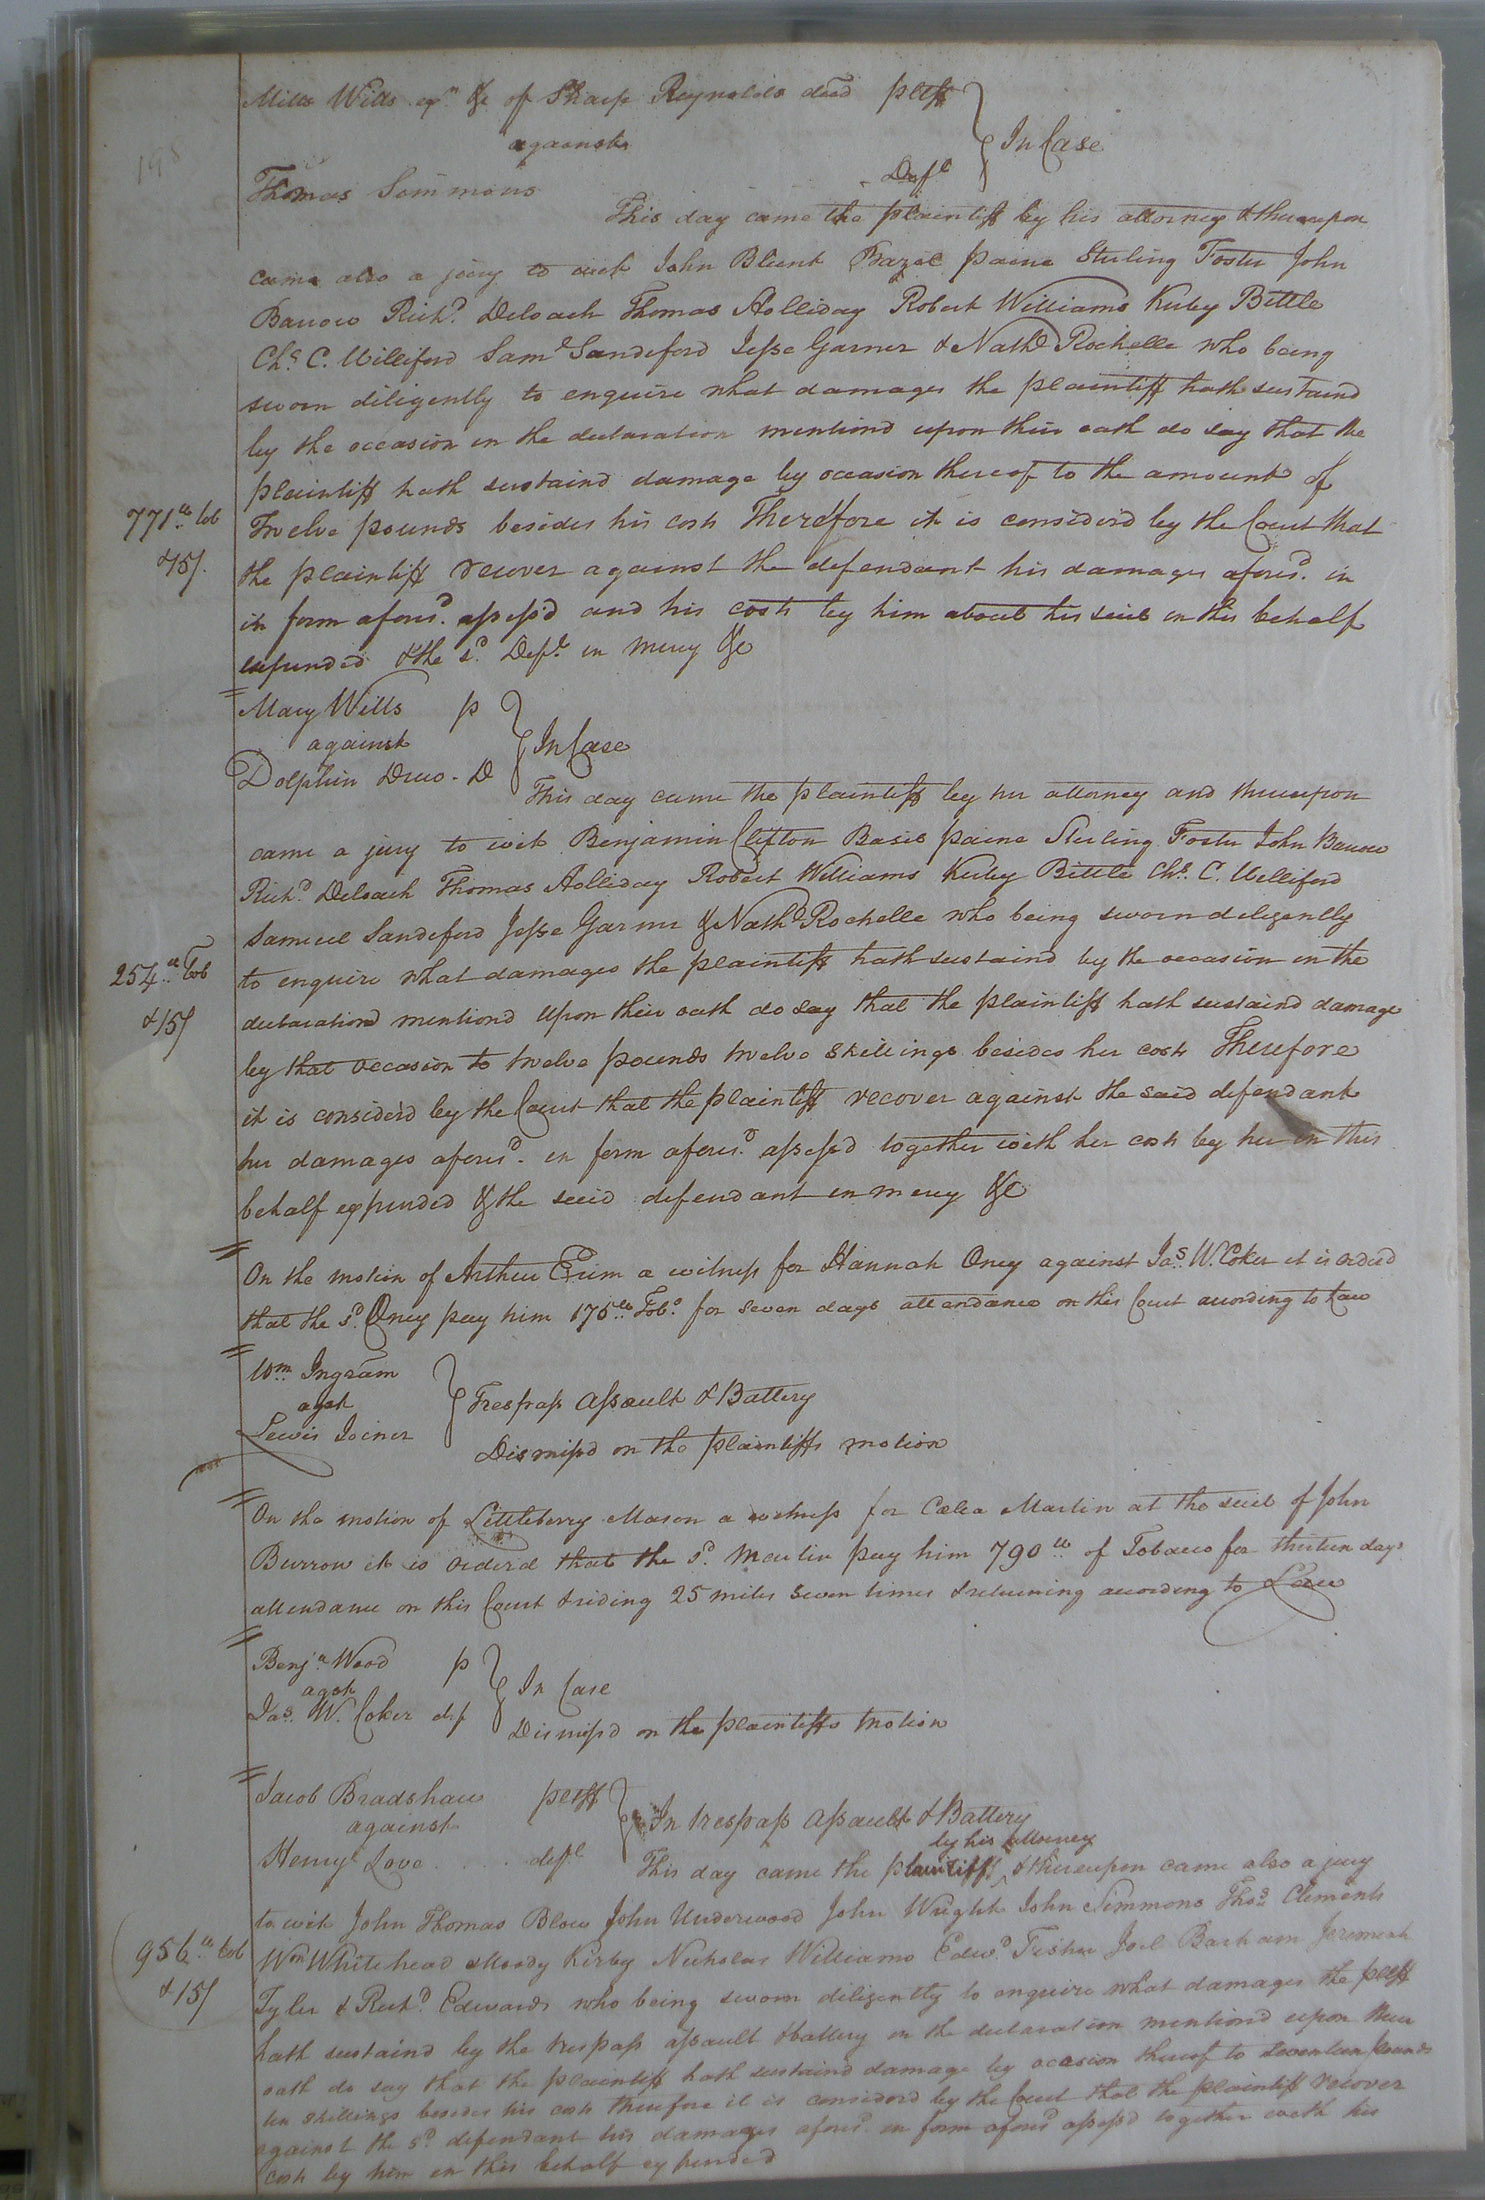 Mills Wills exr &c of Sharpe Reynolds decd pltff
against } In Case
198
Thomas Simmons Deft
This day came the plaintiff by his attorney & thereupon
came also a jury to wit John Blunt Bazil paine Sterling Foster John
Barrow Richd. Deloach Thomas Holliday Robert Williams Kirby Bittle
Chs. C. Williford Saml Sandeford Jesse Garner & Nathl Rochelle who being
sworn diligently to enquire what damages the plaintiff hath sustaind
by the occasion in the declaration mentiond upon their oath do say that the
plaintiff hath sustaind damage by occasion thereof to the amount of
771 lb tob
Twelve pounds besides his costs Therefore it is considerd by the Court that
&15/.
the plaintiff recover against the defendant his damages aforesd. in
in form aforesd. assess'd and his costs by him about his suit in this behalf
expended & the sd. Deft. in mercy &c
Mary Wills p
against } In Case
Dolphin Drew - D
This day came the plaintiff by her attorney and thereupon
came a jury to wit Benjamin Clifton Basil paine Sterling Foster John Barrow
Richd. Deloach Thomas Holliday Robert Williams Kirby Bittle Chs. C. Williford
Samuel Sandeford Jesse Garner & Nathl Rochelle who being sworn deligently
254 lb Tob
to enquire what damages the plaintiff hath sustaind by the occasion in the
&15/
declaration mentiond upon their oath do say that the plaintiff hath sustaind damage
by that occasion to twelve pounds twelve skillings besides her costs Therefore
it is considerd by the Court that the plaintiff recover against the said defendant
her damages aforesd. in form aforesd. assess'd together with her costs by her in this
behalf expended & the said defendant in mercy &c
On the motion of Arthur a witness for Hannah Oney against Jas. W. Coker it is orderd
that the sd. Oney pay him 175 lb Tobo. for seven days attendance on this Court according to Law
Wm. Ingram
agst } Trespass Assault & Battery
Lewis Joiner
Dismissd on the plaintiffs motion
On the motion of Littleberry Mason a witness for Celia Martin at the suit of John
Burrow it is orderd that the sd. Martin pay him 790 lb of Tobacco for thirteen days
attendance on this Court & riding 25 miles seven times & returning according to Law
Benja. Wood p
agst } In Case
Jas. W. Coker def
Dismissd on the plaintiffs motion
Jacob Bradshaw pltff
against } In trespass assault & Battery
by his attorney
Henry Love .... deft This day came the plaintiff ^ & thereupon came also a jury
to wit John Thomas Blow John Underwood John Wright John Simmons Thos. Clements
956 lb tob
Wm Whitehead Moody Kirby Nicholas Williams Edwd. Fisher Joel Barham Jeremiah
&15/
Tyler & Richd. Edwards who being sworn diligently to enquire what damages the pltff
hath sustaind by the trespass assault & battery in the declaration mentiond upon their
oath do say that the plaintiff hath sustaind damage by occasion thereof to seventeen pounds
ten skillings besides his costs therefore it is considerd by the Court that the plaintiff recover
against the sd. defendant his damages aforesd. in form aforesd assessd together with his
costs by him in this behalf expended